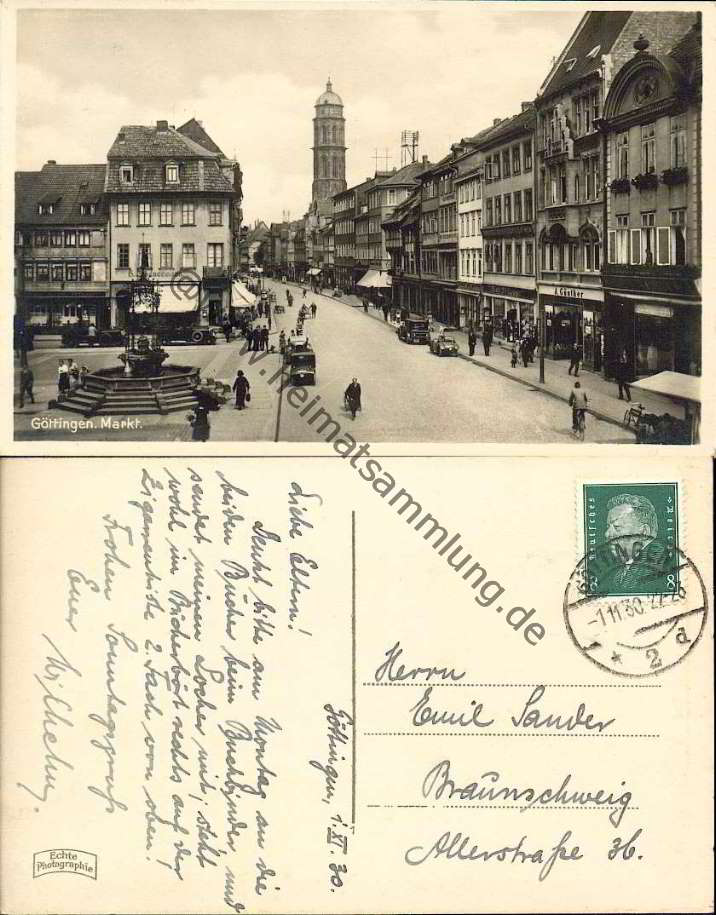 J. Günther
Göttingen. Markt.
www.heimatsammlung.de
Göttingen, 1. XI. 30.
Liebe Eltern!
Denkt bitte am Montag an die
beiden Bücher beim Buchbinder und
sendet meinen Locher mit; steht
wohl im Bücherbört rechts auf der
Zigarrenkiste 2. Fach von oben.
Frohen Sonntagsgruß
Euer Wilhelm.
Echte
Photographie
Deutsches Reich
8 8
GÖTTINGEN
-1.11.30.22-23
1 * 2 d
Herrn
Emil Sander
Braunschweig
Allerstraße 36.